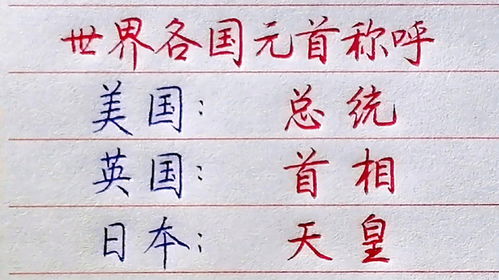 世界各国元首称呼
美国：总统
英国：首相
日本：天皇